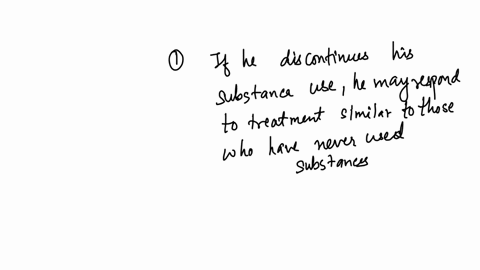 ① If he discontinues his
substance use, he may respond
to treatment similar to those
who have never used
substances